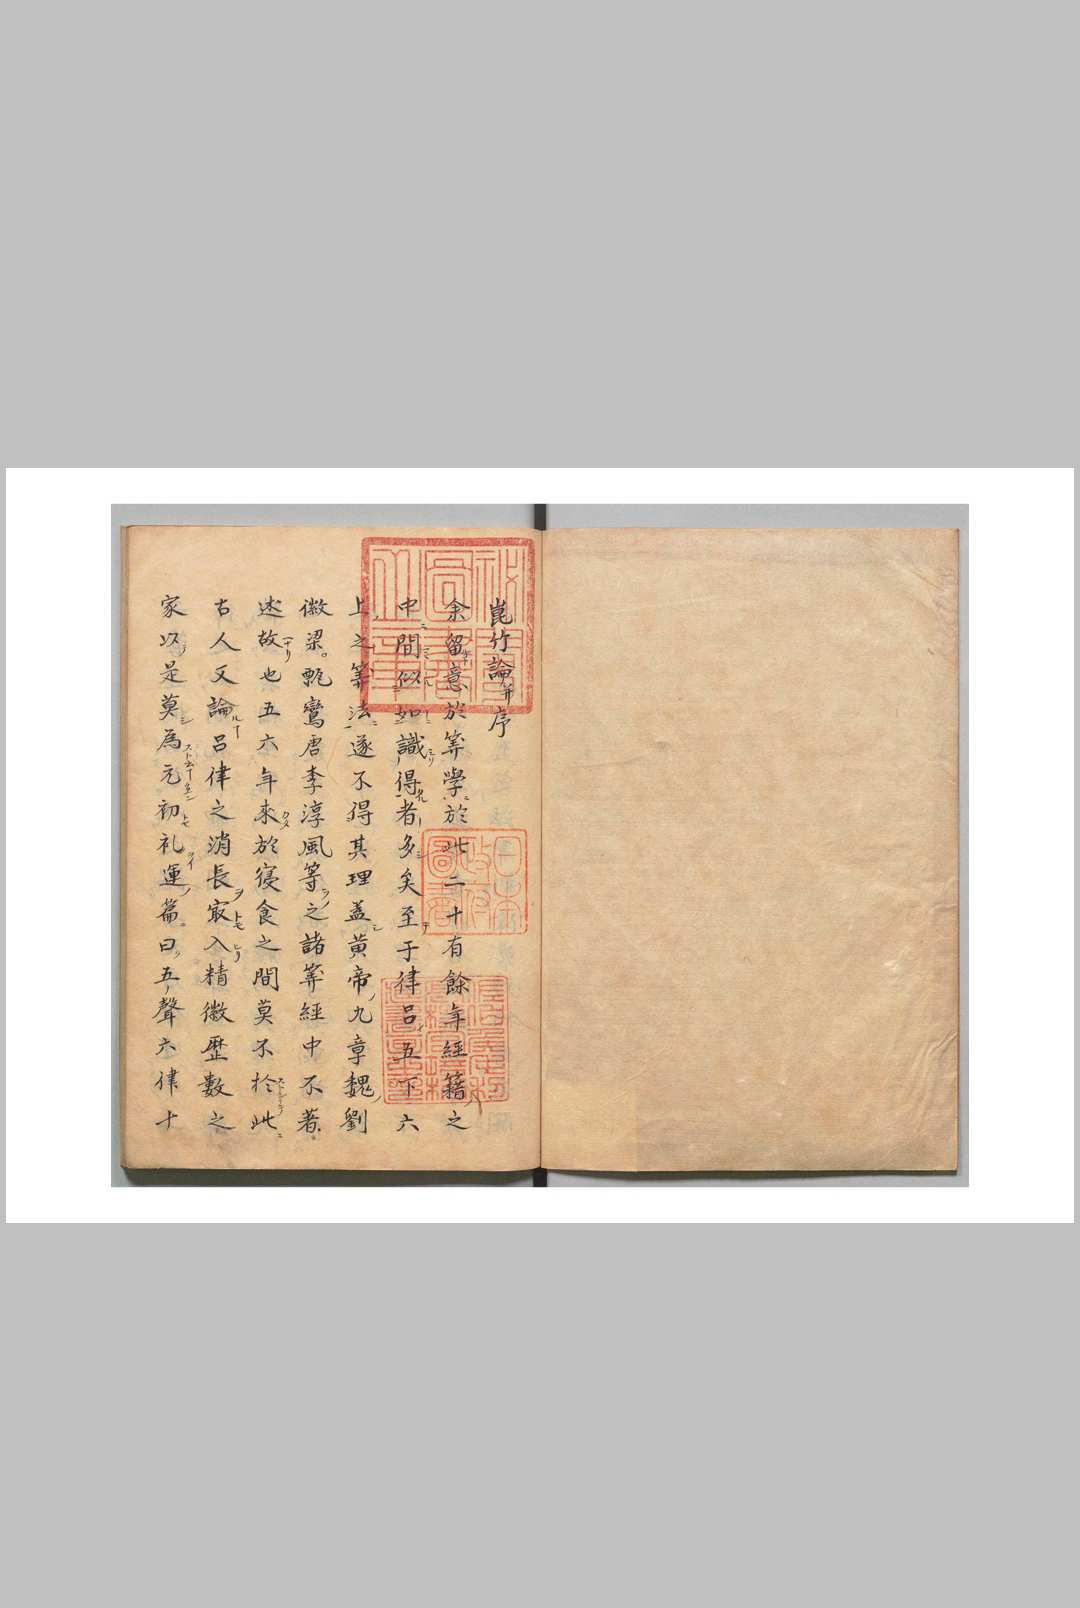 崑竹論并序
余留意於筭學於此二十有餘年經籍之
中間似如識得者多矣至于律呂五下六
上之筭法遂不得其理蓋黄帝九章魏劉
徽梁甄鸞唐李淳風等之諸筭經中不著
述故也五六年来於寝食之間莫不於此
古人又論呂律之消長最入精微歴數之
家以是莫為元初礼運篇曰五聲六律十